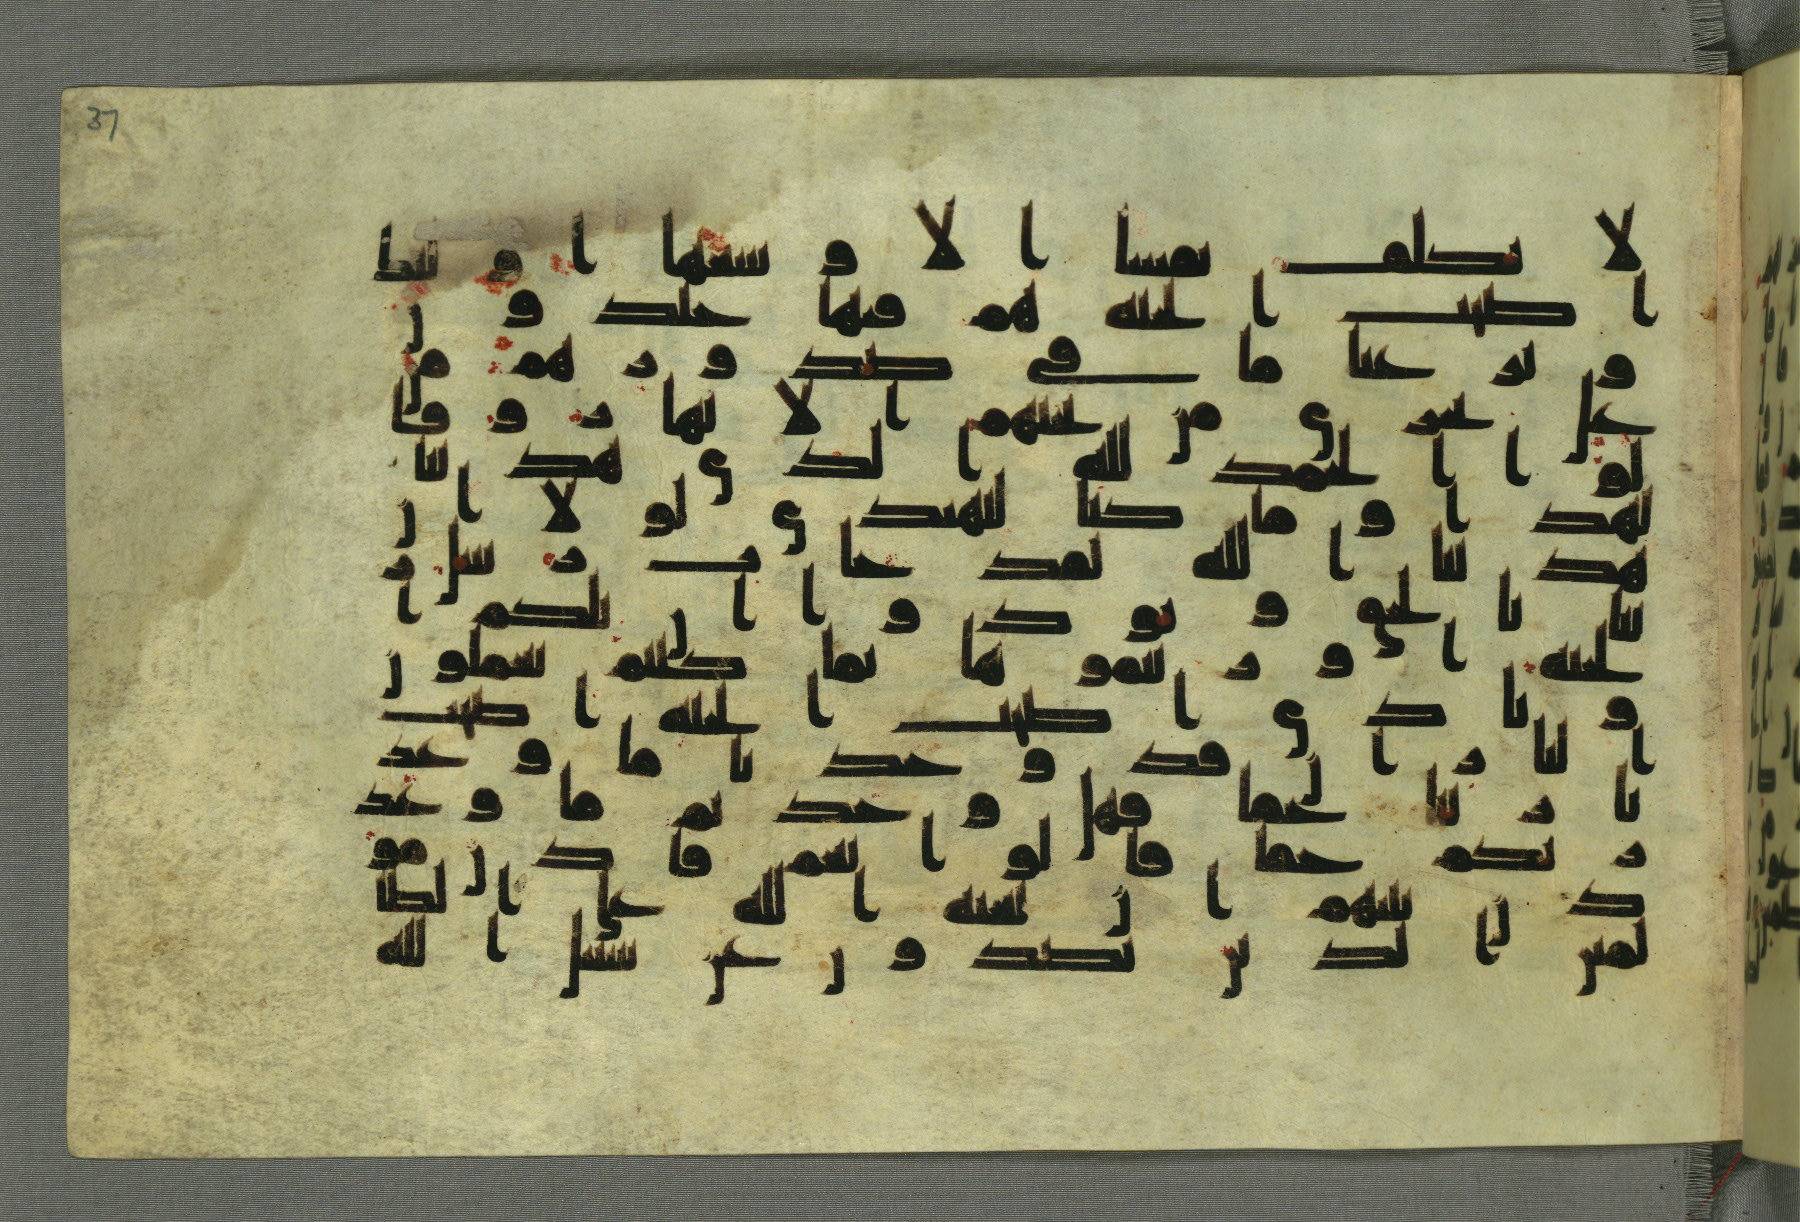 37
لا نكلف نفسا الا وسعها اولئك
اصحب الجنة هم فيها خلدون
ونزعنا ما في صدورهم من
غل تجري من تحتهم الانهر وقا
لوا الحمد لله الذي هدينا
لهذا وما كنا لنهتدي لولا ان
هدينا الله لقد جات رسل ر
بنا بالحق ونودوا ان تلكم ا
لجنة اورثتموها بما كنتم تعملون
ونادى اصحب الجنة اصحب
النار ان قد وجدنا ما وعد
نا ربنا حقا فهل وجدتم ما وعد
ربكم حقا قالوا نعم فاذن مو
ذن بينهم ان لعنة الله على الظا
لمين الذين يصدون عن سبيل الله